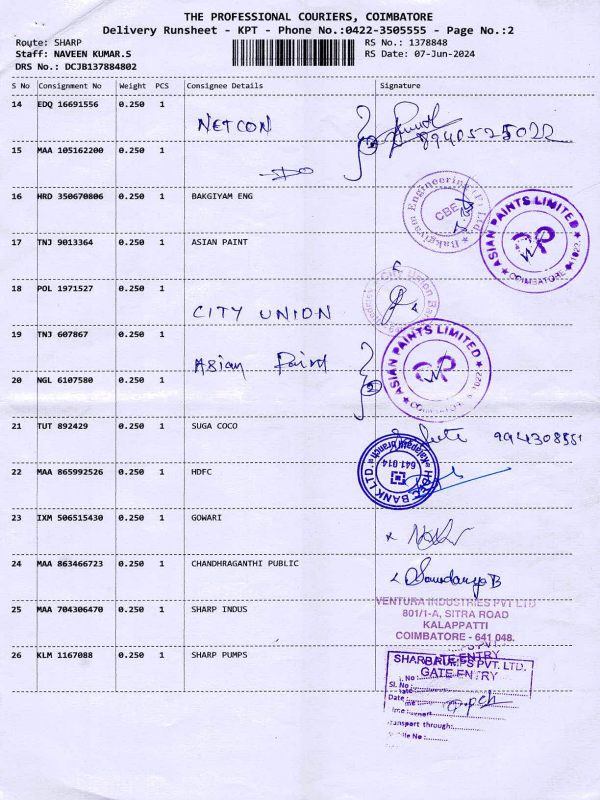 THE PROFESSIONAL COURIERS, COIMBATORE
Delivery Runsheet - KPT - Phone No.:0422-3505555 - Page No.:2
Route: SHARP RS No.: 1378848
Staff: NAVEEN KUMAR.S RS Date: 07-Jun-2024
DRS No.: DCJB137884802
S No Consignment No Weight PCS Consignee Details Signature
14 EDQ 16691556 0.250 1
NETCON
8940525022
15 MAA 105162200 0.250 1
DO
16 HRD 350670806 0.250 1 BAKGIYAM ENG
Bakgiyam Engineering (P) Ltd
CBE
17 TNJ 9013364 0.250 1 ASIAN PAINT
ASIAN PAINTS LIMITED
COIMBATORE
18 POL 1971527 0.250 1
CITY UNION
City Union Bank
19 TNJ 607867 0.250 1
Asian Paint
2
ASIAN PAINTS LIMITED
COIMBATORE
20 NGL 6107580 0.250 1
21 TUT 892429 0.250 1 SUGA COCO
22 MAA 865992526 0.250 1 HDFC
HDFC BANK LTD.
Kalapatti Branch
641 014
23 IXM 506515430 0.250 1 GOWARI
24 MAA 863466723 0.250 1 CHANDHRAGANTHI PUBLIC
Soundarya B
25 MAA 704306470 0.250 1 SHARP INDUS
VENTURA INDUSTRIES PVT LTD
801/1-A, SITRA ROAD
KALAPPATTI
COIMBATORE - 641 048.
26 KLM 1167088 0.250 1 SHARP PUMPS
SHARP PUMPS PVT. LTD.
GATE ENTRY
Sl. No
Date :